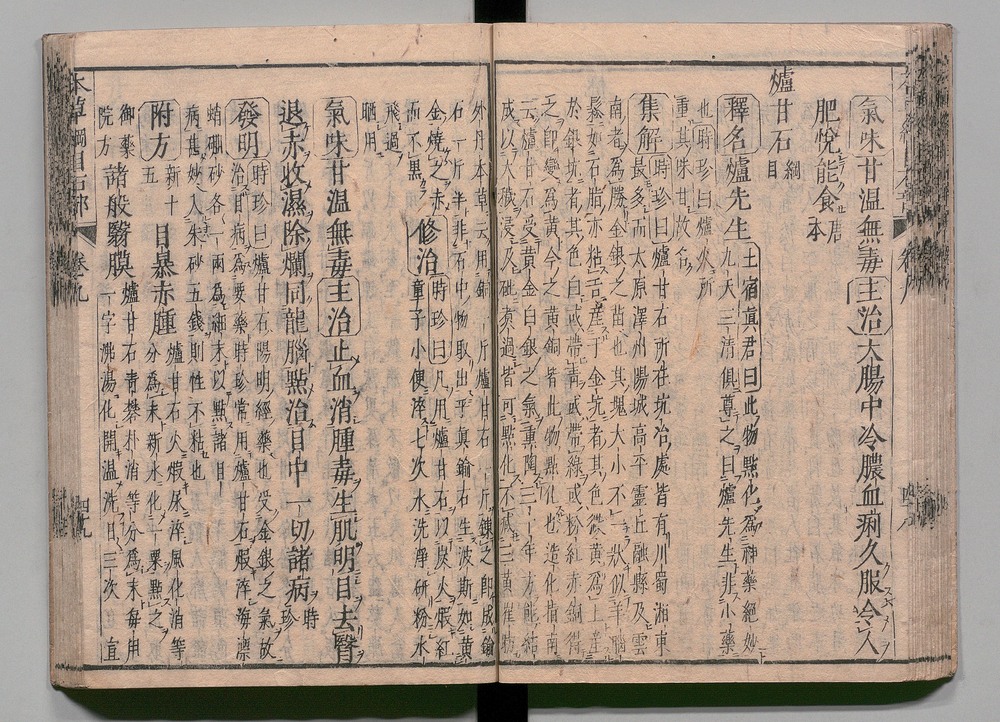 氣味甘温無毒主治大腸中冷膿血痢久服令人
肥悅能食唐本
爐甘石綱目
釋名爐先生土宿真君曰此物點化爲神藥絕妙九天三清俱尊之曰爐先生非小藥
也時珍曰爐火所重其味甘故名
集解時珍曰爐甘石所在坑冶處皆有川蜀湘東最多而太原澤州陽城高平靈丘融縣及雲
南者爲勝金銀之苗也其塊大小不一狀似羊腦鬆如石脂亦粘舌產于金坑者其色微黃爲上產
於銀坑者其色白或帶青或帶綠或粉紅赤銅得之即變爲黃今之黃銅皆此物點化也造化指南
云爐甘石受黃金白銀之氣熏陶三十年方能結成以大穢浸及砒煮過皆可點化不減三黃崔昉
外丹本草云用銅一斤爐甘石一斤鍊之即成鍮石一斤半非石中物取出乎真鍮石生波斯如黃
金燒之赤而不黑修治時珍曰凡用爐甘石以炭火煆紅童子小便淬七次水洗淨研粉水
飛過晒用
氣味甘温無毒主治止血消腫毒生肌明目去翳
退赤收濕除爛同龍腦點治目中一切諸病時珍
發明時珍曰爐甘石陽明經藥也受金銀之氣故治目病爲要藥時珍常用爐甘石煆淬海螵
蛸硼砂各一兩爲細末以點諸目病甚妙入朱砂五錢則性不粘也
附方新十五目暴赤腫爐甘石火煆尿淬風化消等分爲末新水化一粟點之
御藥院方諸般翳膜爐甘石青礬朴消等分爲末每用一字沸湯化開温洗日三次宣
本草綱目石部 卷九 四九